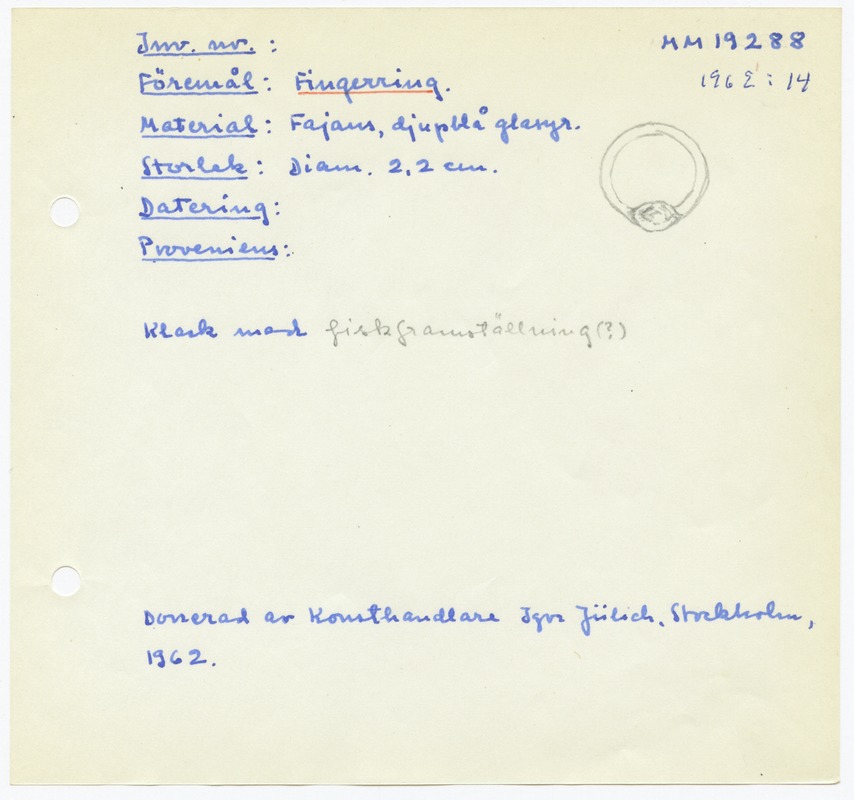 Inv. nr. : MM 19288
Föremål: Fingerring. 1962:14
Material: Fajans, djupblå glasyr.
Storlek: Diam. 2,2 cm.
Datering:
Proveniens:
Klack med fiskframställning(?)
Donerad av Konsthandlare Igor Jülich, Stockholm,
1962.